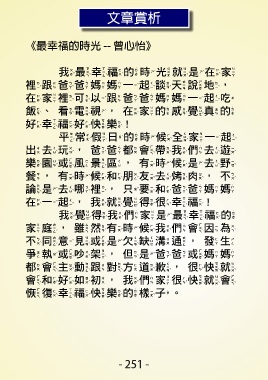 文章賞析
《最幸福的時光 -- 曾心怡》
我最幸福的時光就是在家
裡跟爸爸媽媽一起談天說地，
在家裡可以跟爸爸媽媽一起吃
飯、看電視，在家的感覺真的
好幸福好快樂！
平常假日的時候全家一起
出去玩，爸爸都會帶我們去遊
樂園或風景區，有時候是去野
餐，有時候和朋友去烤肉，不
論是去哪裡，只要和爸爸媽媽
在一起，我就覺得很幸福！
我覺得我們家是最幸福的
家庭，雖然有時候我們會因為
不同意見或是欠缺溝通，發生
爭執或吵架，但是爸爸或媽媽
都會主動跟對方道歉，很快就
會和好如初，我們家很快就會
恢復幸福快樂的樣子。
- 251 -